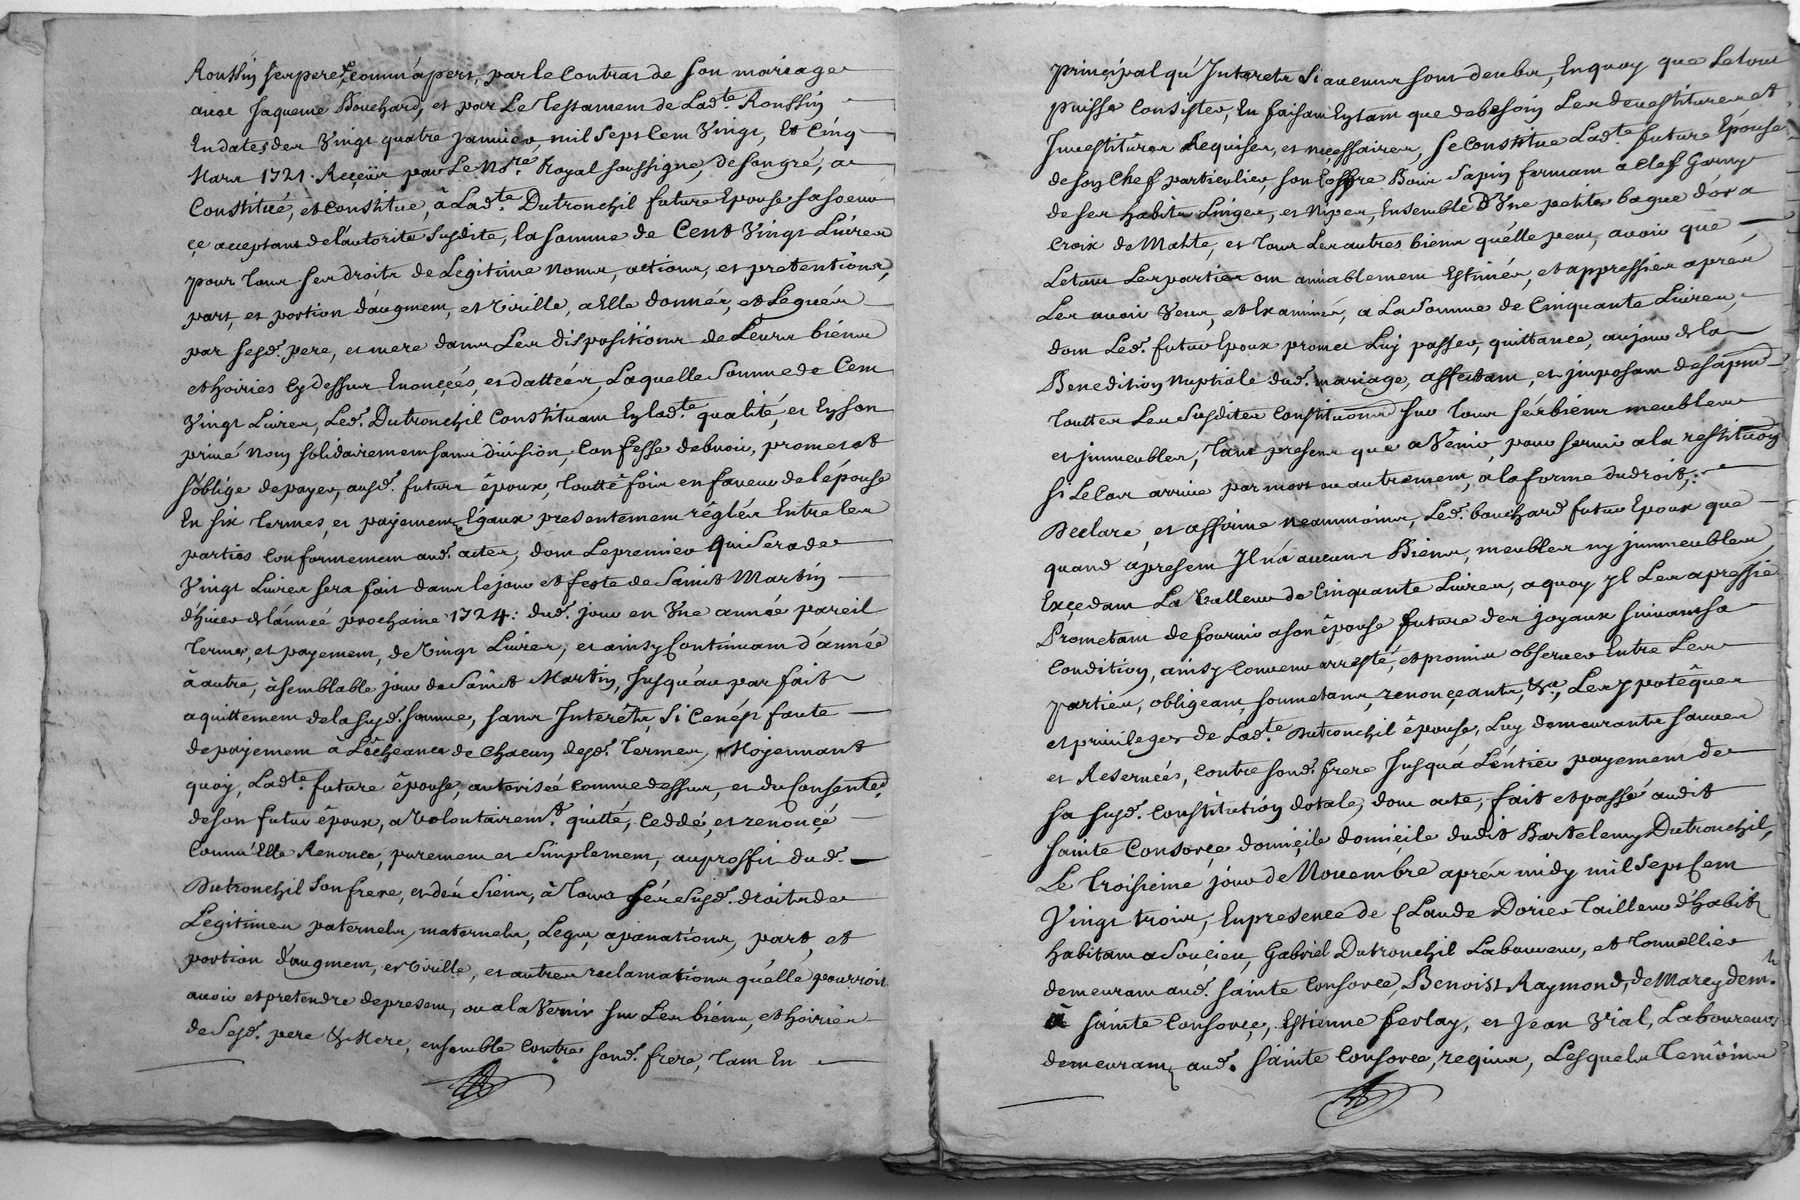 Roussin ser pere, & comm'apert, par le Contrat de son mariage
avec Jaqueme Bouchard, et par Le Testament de Lad.te Roussin
En dates des Vingt quatre Janvier, mil Sept Cent Vingt, Et Cinq
Mars 1721. Reçeüs par Le No.re Royal soussigné, de son gré, a
Constitué, et Constitue, à Lad.te Dutronchil future Epouse sa soeur
çe acceptant de l'autorite Susdite, la somme de Cent Vingt Livres
pour tous ses droits de Legitime noms, actions, et pretentions,
part, et portion d'augment, et Virille, a Elle donnés, et Légués
par sesd. pere, et mere dans Les dispositions de Leurs biéns
et hoiries Cy dessus Enonçées, et dattées, Laquelle Somme de Cent
Vingt Livres, Led. Dutronchil Constituant En lad.te qualité, et En son
privé Nom solidairement sans division, Confesse debvoir, promet et
s'oblige de payer, ausd. futurs époux, toutte fois en faveur de l'épouse
En six termes, et payements Egaux presentement réglés Entre les
parties Conformement aud. actes, dont Le premier qui Sera de
Vingt Livres sera fait dans le jour et feste de Sainct Martin
d'hiver de l'année prochaine 1724: dud. jour en Vne année pareil
terme, et payement, de Vingt Livres, et ainsy Continuant d'année
à autre, à semblable jour de Sainct Martin, Jusqu'au parfait
aquittement de la susd. somme, sans Interéts, Si Cen'ést faute
de payement à L'échéance de chacun desd. termes, Mojennant
quoy, Lad.te future épouse, autorisée comme dessus, et du Consentem.t
de son futur époux, a Volontairem.t quitté, Ceddé, et renonçé
Comm'Elle Renonce, purement et Simplement, au proffit dud.
Dutronchil Son frere, et dés Siens, à tous sés Susd. droits de
Legitimes paternels, maternels, Legs, apanations, part, et
portion d'augment, et Virille, et autres reclamations qu'elle pourroit
avoir et pretendre de present, ou a la Venir sur Les biéns, et hoiries
de Sesd. pere & Mere, ensemble contre sond. frere, tant En
principal qu'Interets Si aucuns sont deubs, En quoy que Le tout
puisse Consister, En faisant En tant que de besoin Les devestitures et
Investitures Requises, et nécessaires, Se Constitue Lad.te future Epouse
de son Chef particulier, son Coffre Bois Sapin fermant à Clef Garny
de ses habits Linges, et nipes, Ensemble d'Vne petite bague d'or a
Croix de Malte, et tous Les autres biens qu'elle peut avoir que
Le tout Les parties ont amiablement Estimés, et appressies aprés
Les avoir Veus, et Examinés, a La Somme de Cinquante Livres,
dont Led. futur Epoux promet Luy passer, quittance, au jour de la
Benediction Nuptiale dud. mariage, affectant, et jmposant desapnt
toutter Les Susdites Constitutions sur tous sés biéns meubles
et jmmeubles, tant presens que a Venir, pour servir a la restitution
Si Le Cas arrive par mort ou autrement, a la forme du droit,:
Declare, et affirme neanmoins, Led. bouchard futur Epoux que
quand apresent Jl n'a aucuns Biens, meubles ny jmmeubles,
Exçedant La Valleur de Cinquante Livres, a quoy jl Les apressie
Prometant de fournir a son épouse future des joyaux suivant sa
Condition, ainsy Convenu arresté, et promis observer Entre Les
parties, obligeant, soumetans, renonçeants, &a, Les ypotêques
et privileges de Lad.te Dutronchil épouse, Luy demeurants sauves
et Reservées, contre sond. frere Jusqu'a L'éntier payement de
Sa susd. Constitution dotale, dont acte, fait et passé audit
Sainte Consorçe domiçile domiçile dudit Bartelemy Dutronchil,
Le troisieme jour de Novembre aprés midy mil Sept Cent
Vingt trois, En presence de Claude Dorier tailleur d'habit
habitant a Souçieu, Gabriel Dutronchil Laboureur, et tonnellier
demeurant aud. Sainte Consorce, Benoist Raymond, de Marcy dem.t
à Sainte Consorçe, Estienne ferlay, et Jean Vial, Laboureurs
demeurant aud. Sainte Consorce, requis, Lesquels témoins